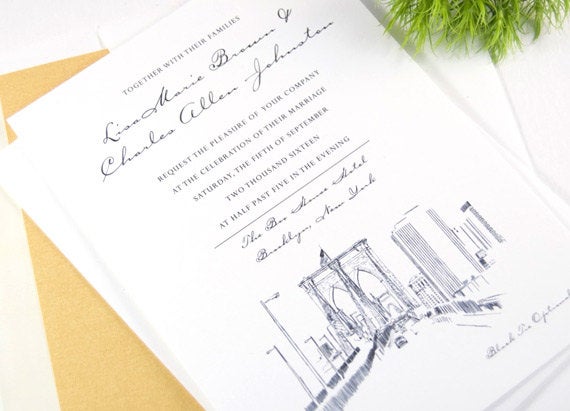 TOGETHER WITH THEIR FAMILIES
Lisa Marie Brown &
Charles Allen Johnston
REQUEST THE PLEASURE OF YOUR COMPANY
AT THE CELEBRATION OF THEIR MARRIAGE
SATURDAY, THE FIFTH OF SEPTEMBER
TWO THOUSAND SIXTEEN
AT HALF PAST FIVE IN THE EVENING
The Box House Hotel
Brooklyn, New York
Black Tie Optional